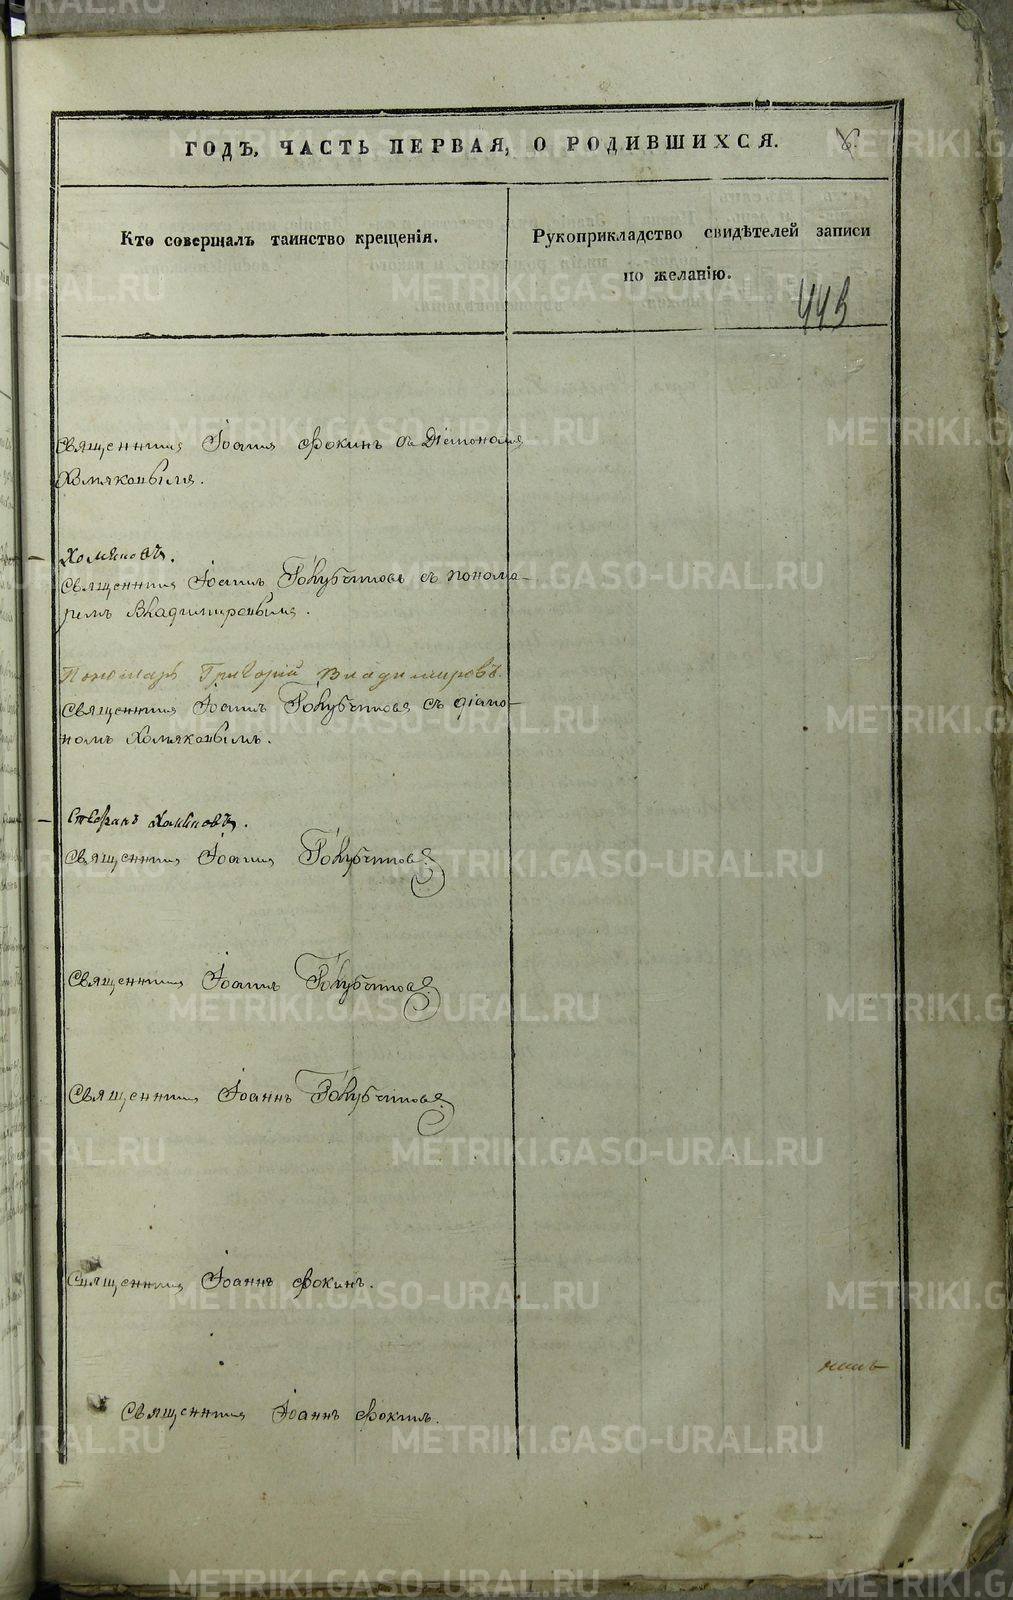 ГОДЪ, ЧАСТЬ ПЕРВАЯ, О РОДИВШИХСЯ.
Кто совершалъ таинство крещенія.
Рукоприкладство свидѣтелей записи
по желанію.
443
Священникъ Іоаннъ Фокинъ съ Діакономъ
Хомяковымъ.
Хомяковъ.
Священникъ Іоаннъ Голубчиковъ съ понома-
ремъ Владимировымъ.
Пономарь Григорій Владимировъ.
Священникъ Іоаннъ Голубчиковъ съ діако-
номъ Хомяковымъ.
Стефанъ Хомяковъ.
Священникъ Іоаннъ Голубчиковъ.
Священникъ Іоаннъ Голубчиковъ.
Священникъ Іоаннъ Голубчиковъ.
Священникъ Іоаннъ Фокинъ.
Священникъ Іоаннъ Фокинъ.
METRIKI.GASO-URAL.RU